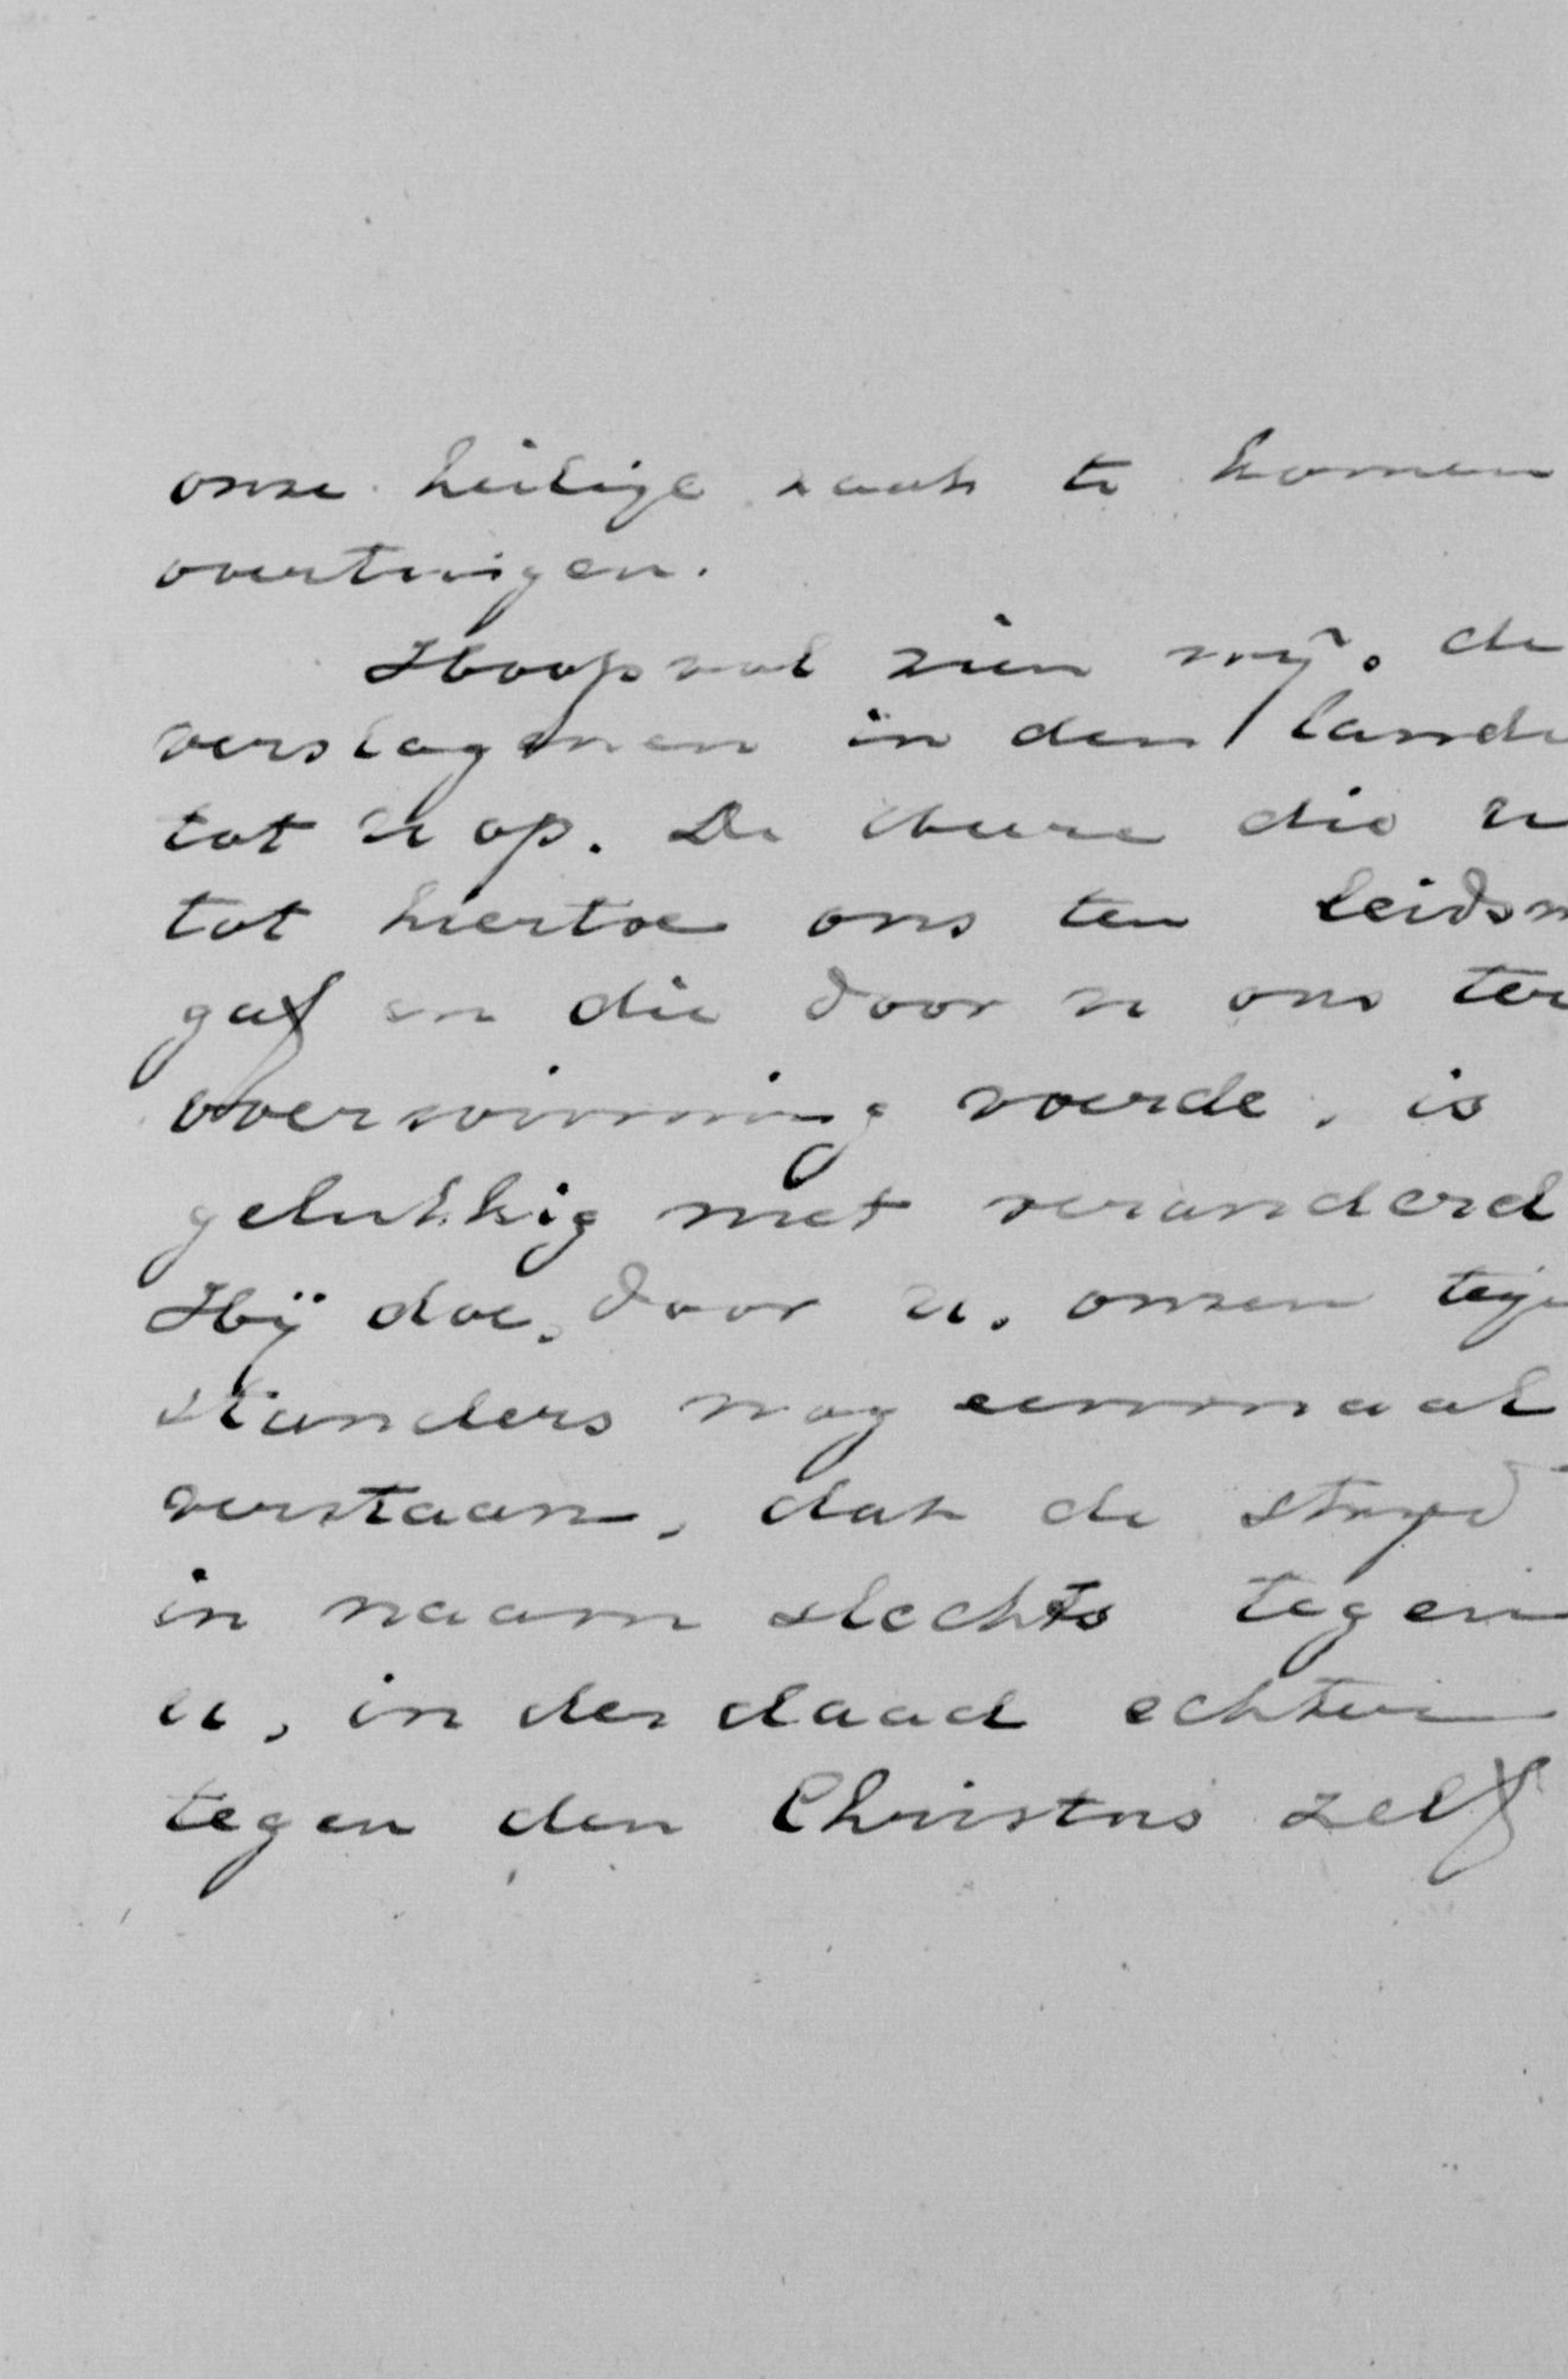 onze heilige zaak te komen
overtuigen.
Hoopvol zien wij, de
verslagenen in den lande
tot u op. De Heere die u
tot hiertoe ons ten leidsm
gaf en die door u ons ter
overwinning voerde, is
gelukkig niet veranderd
Hij doe, door u, onzen tege
standers nog eenmaal
verstaan, dat de strijd
in naam slechts tegen
u, in der daad echter
tegen den Christus zelf